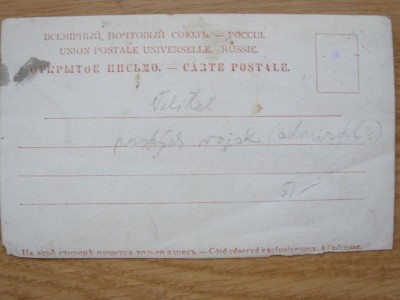 ВСЕМІРНЫЙ ПОЧТОВЫЙ СОЮЗЪ. — РОССІЯ.
UNION POSTALE UNIVERSELLE. RUSSIE.
ОТКРЫТОЕ ПИСЬМО. — CARTE POSTALE.
Velitel
ruských vojsk (admirál?)
5/—
На этой сторонѣ пишется только адресъ. — Côté réservé exclusivement à l'adresse.